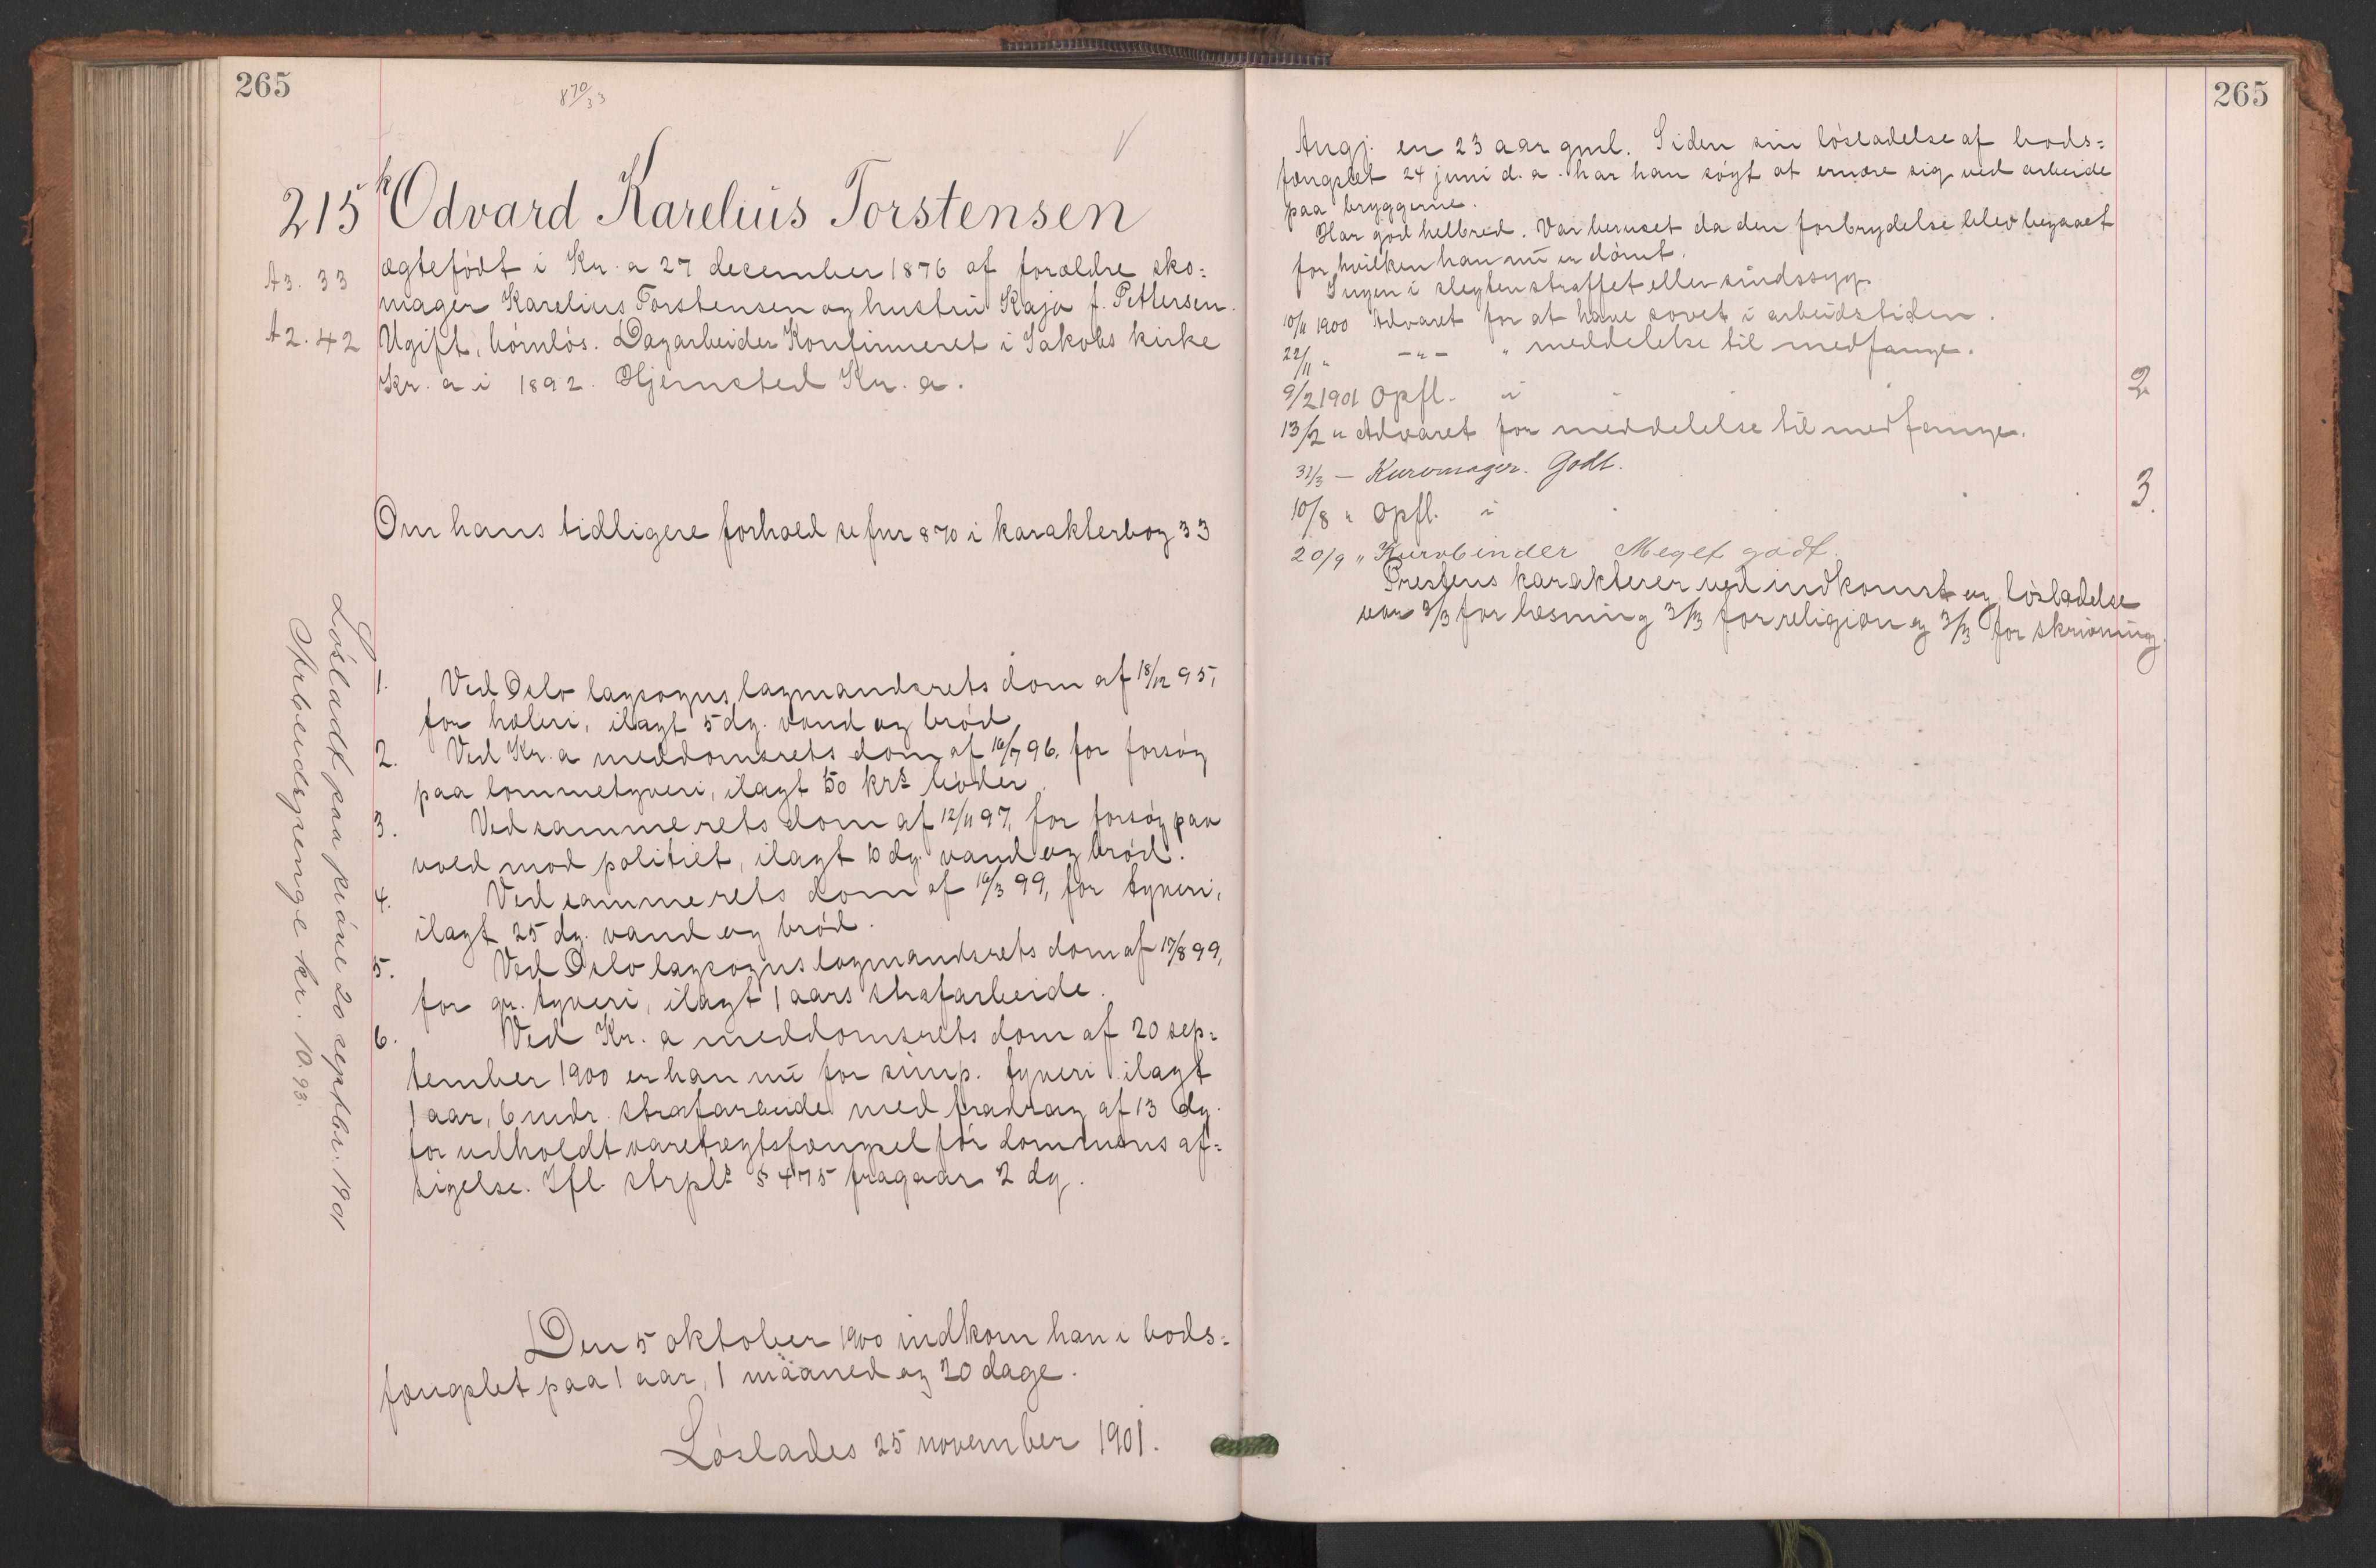 265
870/33
√
215 k Odvard Karelius Torstensen
A3. 33
A2. 42
ægtefødt i Kr.a 27 december 1876 af forældre sko-
mager Karelius Torstensen og hustru Kaja f. Pettersen.
Ugift, børnløs. Dagarbeider Konfirmeret i Jakobs kirke
Kr. a i 1892. Hjemsted Kr. a.
Om hans tidligere forhold se fnr 870 i karakterbog 33
1. Ved Oslo lagsogns lagmandsrets dom af 18/12 95,
for hæleri, ilagt 5 dg. vand og brød
2. Ved Kr. a meddomsrets dom af 16/7 96, for forsøg
paa lommetyveri, ilagt 50 krs bøder.
3. Ved samme rets dom af 12/11 97, for forsøg paa
vold mod politiet, ilagt 10 dg. vand og brød.
4. Ved samme rets dom af 16/3 99, for tyveri,
ilagt 25 dg. vand og brød.
5. Ved Oslo lagsogns lagmandsrets dom af 17/8 99,
for gr. tyveri, ilagt 1 aars strafarbeide.
6. Ved Kr. a meddomsrets dom af 20 sep-
tember 1900 er han nu for simp. tyveri ilagt
1 aar, 6 mdr. strafarbeide med fradrag af 13 dg.
for udholdt varetægtsfængsel før dommens af-
sigelse. Ifl. strpls § 475 fragaar 2 dg.
Den 5 oktober 1900 indkom han i bods-
fængslet paa 1 aar, 1 maaned og 20 dage.
Løslades 25 november 1901.
Løsladt paa prøve 20 septbr. 1901
Arbeidspenge kr. 10.93.
265
Angj. en 23 aar gml. Siden sin løsladelse af bods-
fængslet 24 juni d. a. har han søgt at ernære sig ved arbeide
paa bryggerne.
Har god helbred. Var beruset da den forbrydelse blev begaaet
for hvilken han nu er dømt.
Ingen i slegten straffet eller sindssyg.
10/11 1900 Advaret for at have sovet i arbeidstiden.
22/11 " -"- " meddelelse til medfange.
9/2 1901 Opfl. i 2
13/2 " Advaret for meddelelse til medfange.
31/3 — Kurvmager. Godt.
10/8 " Opfl. i 3.
20/9 " Kurvbinder Meget godt.
Prestens karakterer ved indkomst og løsladelse
var 3/3 for læsning 3/3 for religion og 3/3 for skrivning.